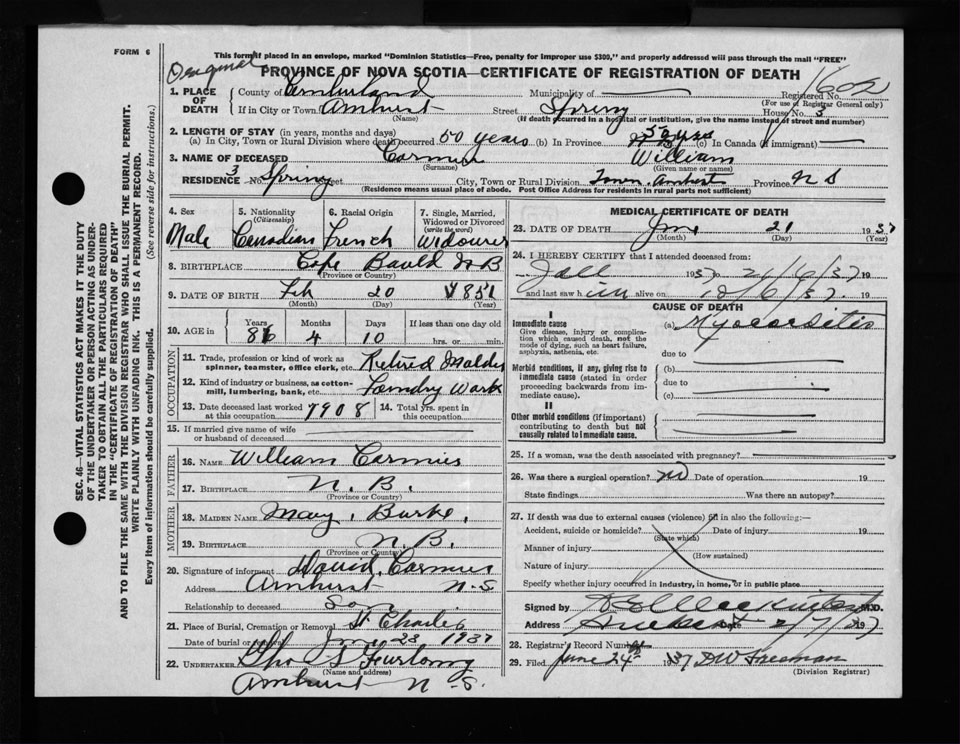 FORM 6
This form if placed in an envelope, marked "Dominion Statistics—Free, penalty for improper use $300," and properly addressed will pass through the mail "FREE"
Original
PROVINCE OF NOVA SCOTIA—CERTIFICATE OF REGISTRATION OF DEATH
1. PLACE OF DEATH County of Cumberland Municipality of Registered No. 1602
(For use of Registrar General only)
If in City or Town Amherst Street Spring House No. 3
(Name) (If death occurred in a hospital or institution, give the name instead of street and number)
2. LENGTH OF STAY (in years, months and days)
(a) In City, Town or Rural Division where death occurred 50 years (b) In Province 50 years (c) In Canada (if immigrant)
3. NAME OF DECEASED Cormier William
(Surname) (Given name or names)
RESIDENCE No. 3 Spring Street City, Town or Rural Division Town Amherst Province N S
(Residence means usual place of abode. Post Office Address for residents in rural parts not sufficient)
4. Sex Male
5. Nationality (Citizenship) Canadian
6. Racial Origin French
7. Single, Married, Widowed or Divorced (write the word) Widower
8. BIRTHPLACE Cape Bauld N B
(Province or Country)
9. DATE OF BIRTH Feb 20 1851
(Month) (Day) (Year)
10. AGE in Years 86 Months 4 Days 10 If less than one day old hrs. or min.
OCCUPATION
11. Trade, profession or kind of work as spinner, teamster, office clerk, etc. Retired Molder
12. Kind of industry or business, as cotton-mill, lumbering, bank, etc. Foundry Work
13. Date deceased last worked at this occupation 1908 14. Total yrs. spent in this occupation
15. If married give name of wife or husband of deceased
FATHER
16. NAME William Cormier
17. BIRTHPLACE N. B.
(Province or Country)
MOTHER
18. MAIDEN NAME Mary Burke
19. BIRTHPLACE N. B.
(Province or Country)
20. Signature of informant David Cormier
Address Amherst N-S
Relationship to deceased Son
21. Place of Burial, Cremation or Removal St Charles
Date of burial or removal June 23 1937
22. UNDERTAKER Thos L Furlong
(Name and address)
Amherst N-S.
MEDICAL CERTIFICATE OF DEATH
23. DATE OF DEATH June 21 1937
(Month) (Day) (Year)
24. I HEREBY CERTIFY that I attended deceased from:
Fall 1937 to 21/6/37 19
and last saw him alive on 18/6/37. 19
CAUSE OF DEATH
I
Immediate cause
Give disease, injury or complication which caused death, not the mode of dying, such as heart failure, asphyxia, asthenia, etc.
(a) Myocarditis
due to
Morbid conditions, if any, giving rise to immediate cause (stated in order proceeding backwards from immediate cause).
(b)
due to
(c)
II
Other morbid conditions (if important) contributing to death but not causally related to immediate cause.
25. If a woman, was the death associated with pregnancy?
26. Was there a surgical operation? No Date of operation 19
State findings Was there an autopsy?
27. If death was due to external causes (violence) fill in also the following:—
Accident, suicide or homicide? Date of injury 19
(State which)
Manner of injury
(How sustained)
Nature of injury
Specify whether injury occurred in industry, in home, or in public place
Signed by M.D.
Address Amherst Date 2/7/37
28. Registrar's Record Number
29. Filed June 24 1937 DW Freeman
(Division Registrar)
SEC. 46—VITAL STATISTICS ACT MAKES IT THE DUTY
OF THE UNDERTAKER OR PERSON ACTING AS UNDER-
TAKER TO OBTAIN ALL THE PARTICULARS REQUIRED
IN THE "CERTIFICATE OF REGISTRATION OF DEATH"
AND TO FILE THE SAME WITH THE DIVISION REGISTRAR WHO SHALL ISSUE THE BURIAL PERMIT.
WRITE PLAINLY WITH UNFADING INK. THIS IS A PERMANENT RECORD.
Every item of information should be carefully supplied. (See reverse side for instructions.)